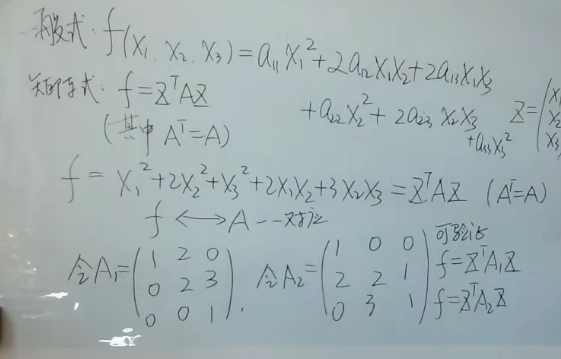 一般式: f(x₁, x₂, x₃) = a₁₁x₁² + 2a₁₂x₁x₂ + 2a₁₃x₁x₃
+ a₂₂x₂² + 2a₂₃x₂x₃
+ a₃₃x₃²
矩阵式: f = XᵀAX
X = (x₁
x₂
x₃
(其中 Aᵀ = A)
f = x₁² + 2x₂² + x₃² + 2x₁x₂ + 3x₂x₃ = XᵀAX (Aᵀ = A)
f ⟷ A 一一对应
令 A₁ = (1 2 0
0 2 3
0 0 1).
令 A₂ = (1 0 0
2 2 1
0 3 1)
可验证
f = XᵀA₁X
f = XᵀA₂X